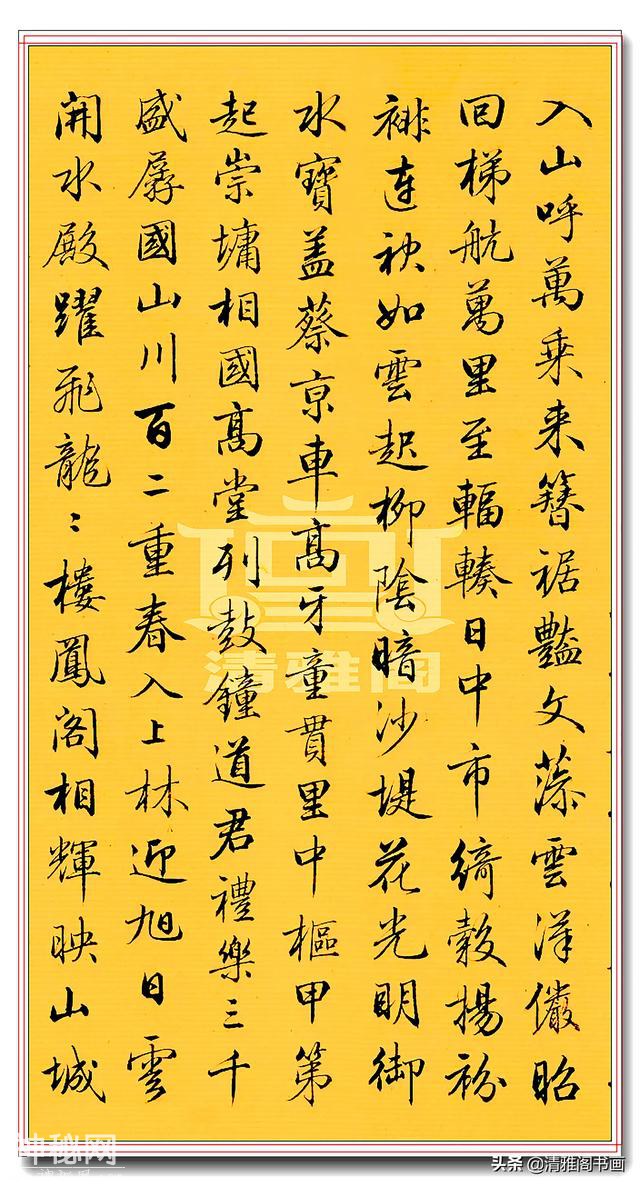 入山呼萬乘来簪裾豔文藻雲漢儼昭
回梯航萬里至輻輳日中市綺縠揚衯
裶連袂如雲起柳陰暗沙堤花光明御
水寶盖蔡京車高牙童貫里中樞甲第
起崇墉相國高堂列鼓鐘道君禮樂三千
盛孱國山川百二重春入上林迎旭日雲
開水殿躍飛龍〻樓鳳閣相輝映山城
清雅阁
神秘网
头条 @清雅阁书画